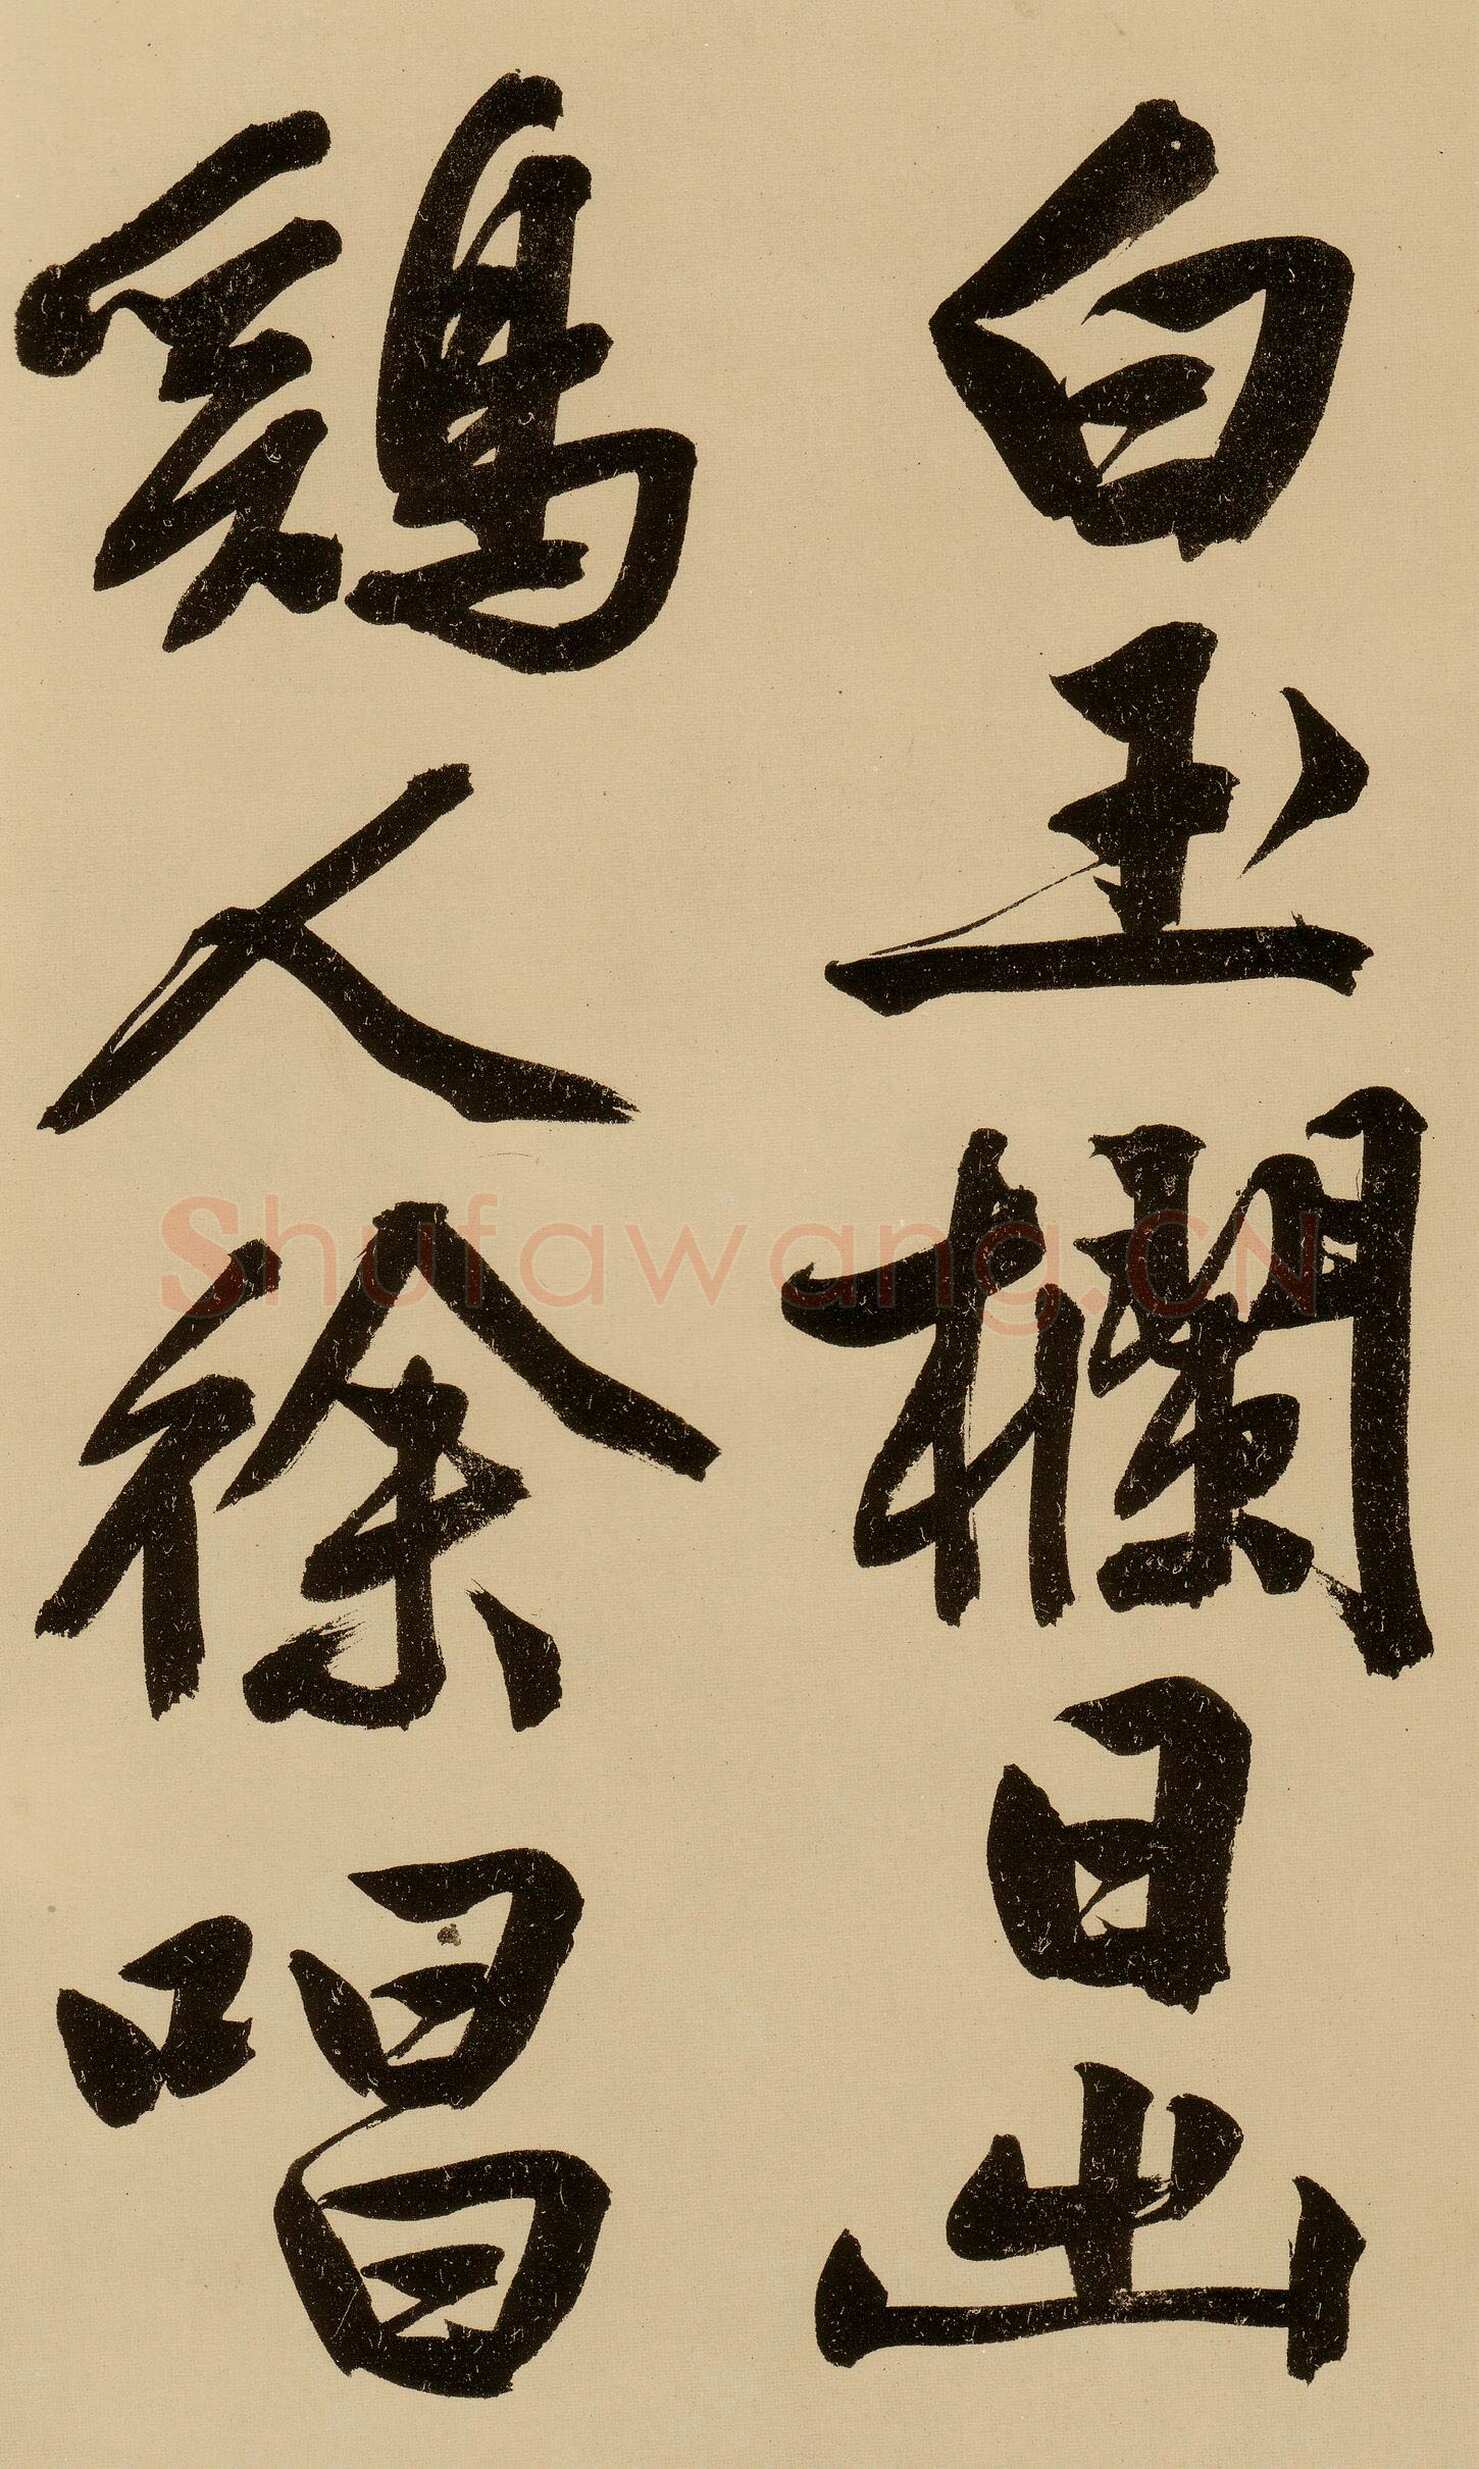 白玉欄日出
鷄人徐唱
Shufawang.CN